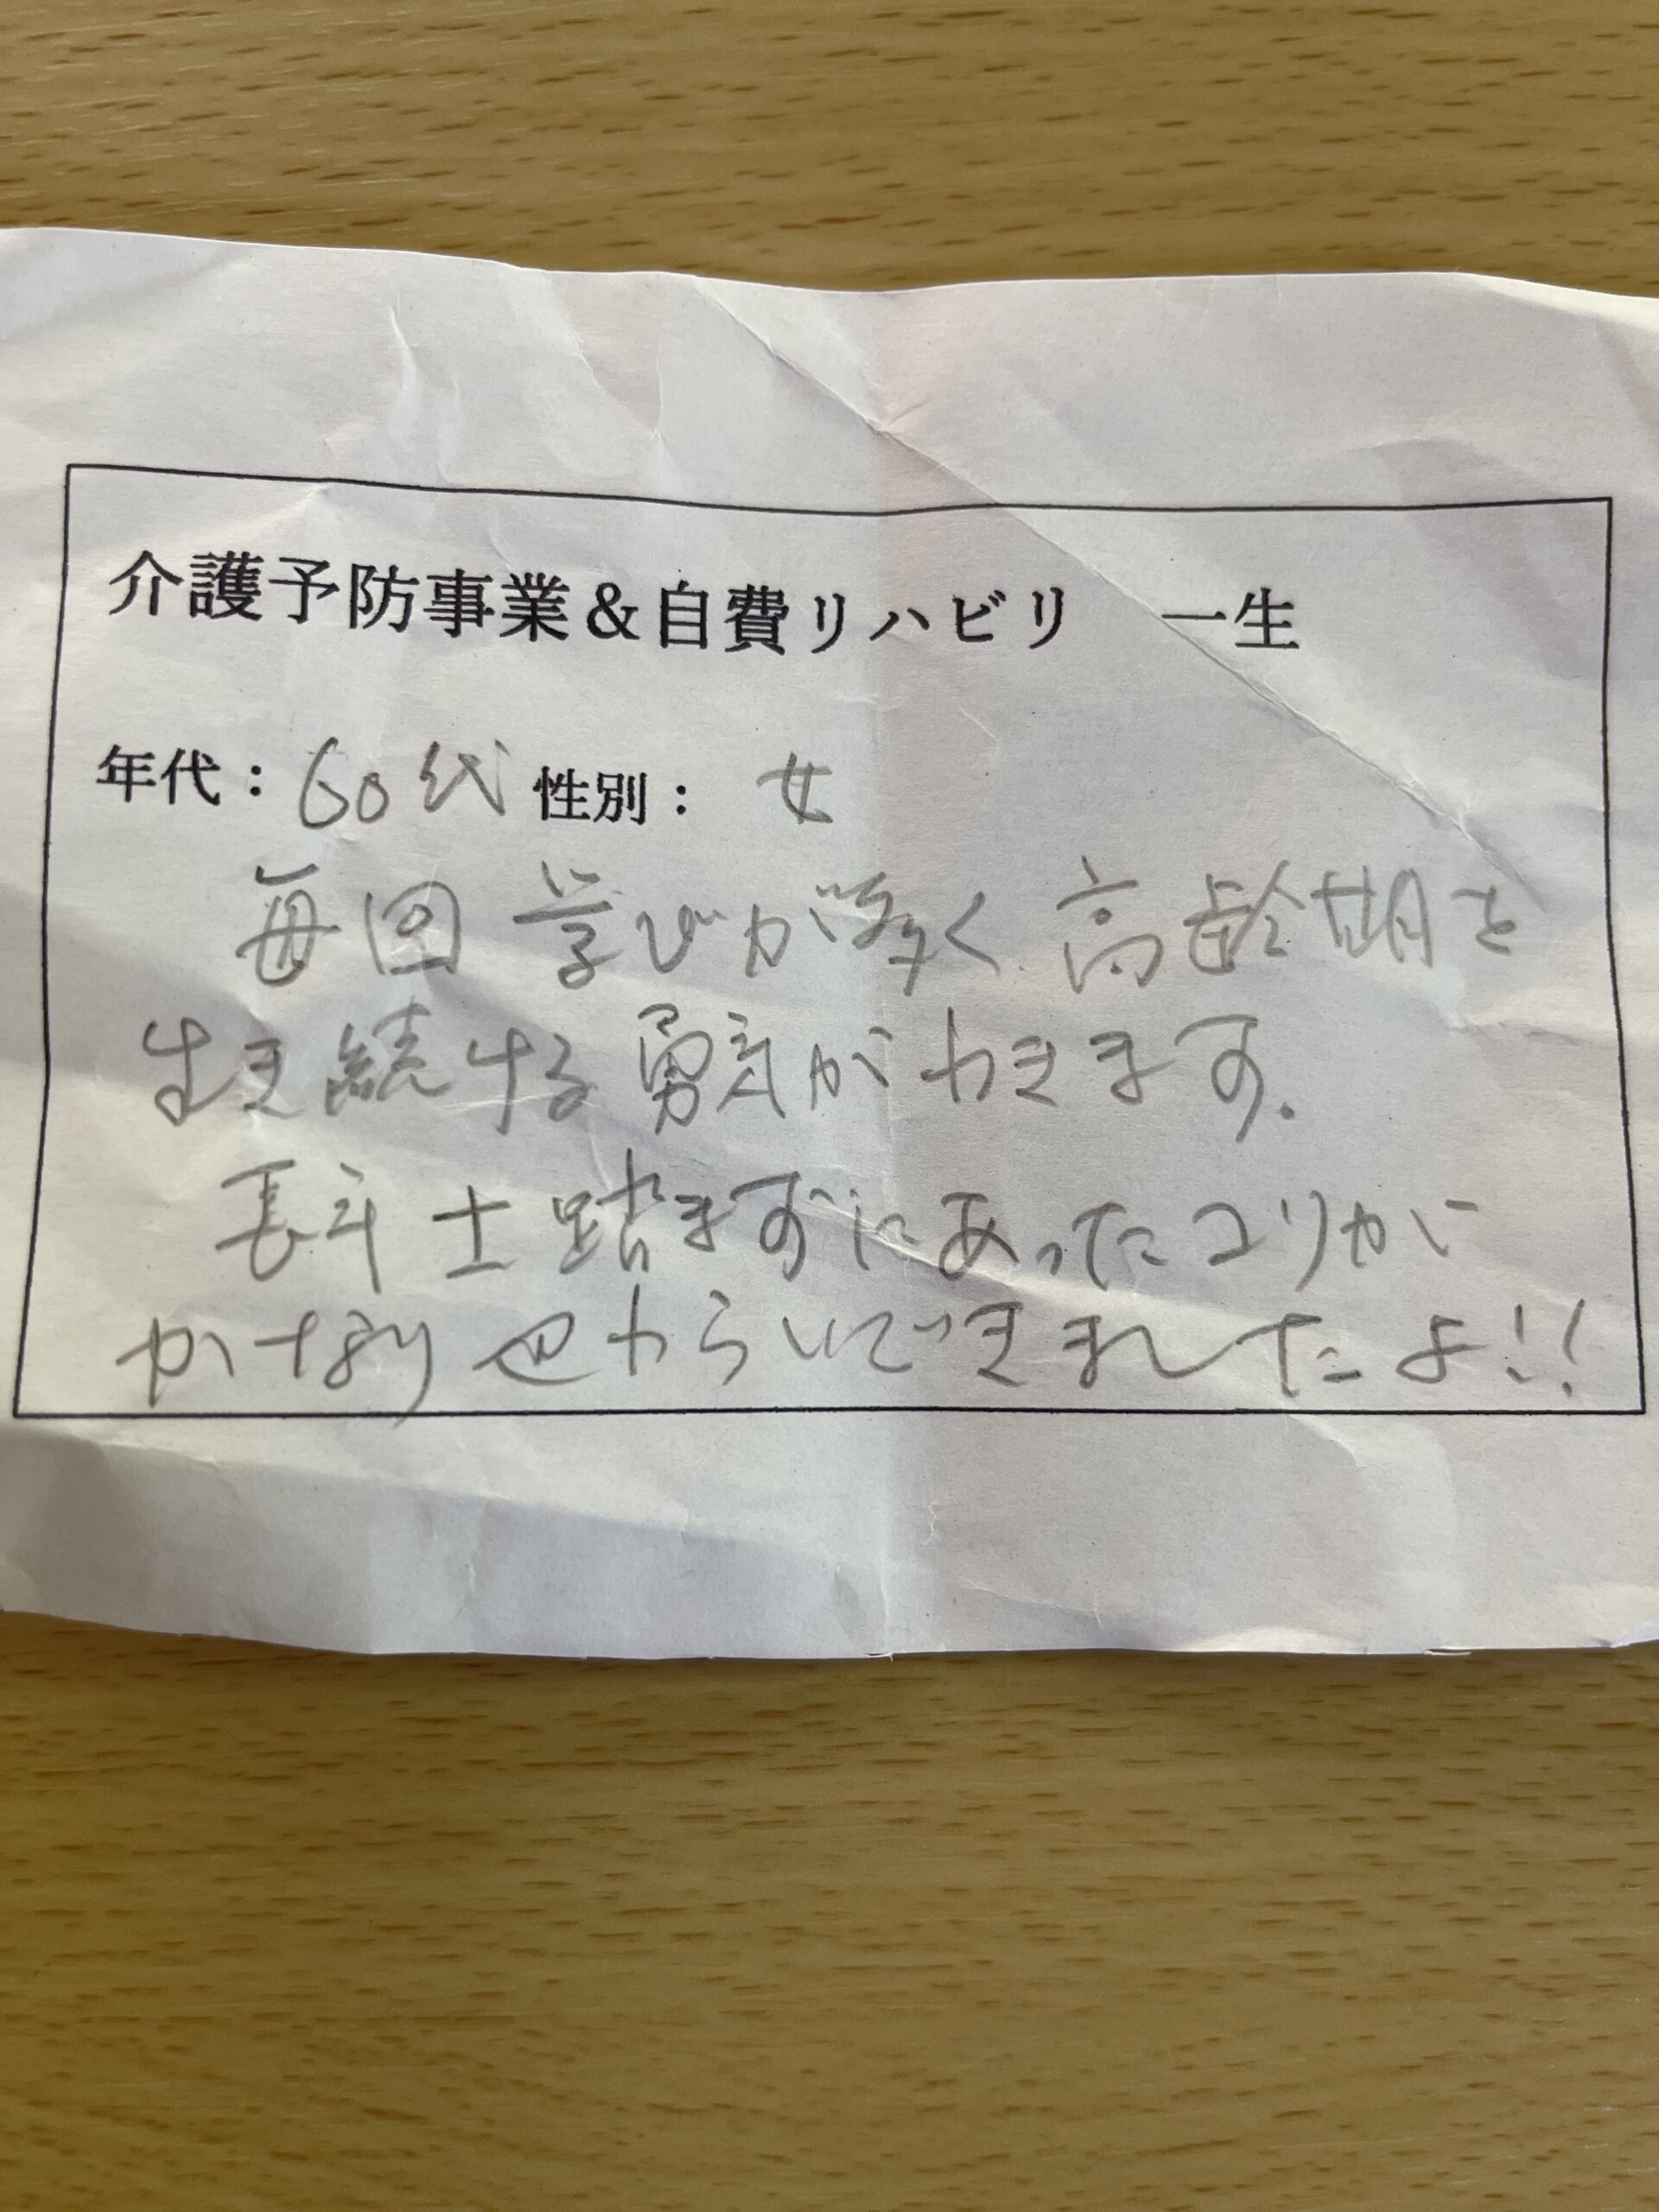 介護予防事業&自費リハビリ 一生
年代：60代 性別： 女
毎回 学びが多く 高齢期を
生き続ける勇気がわきます.
長年 土踏まずにあったコリが
かなり やわらいできましたよ!!